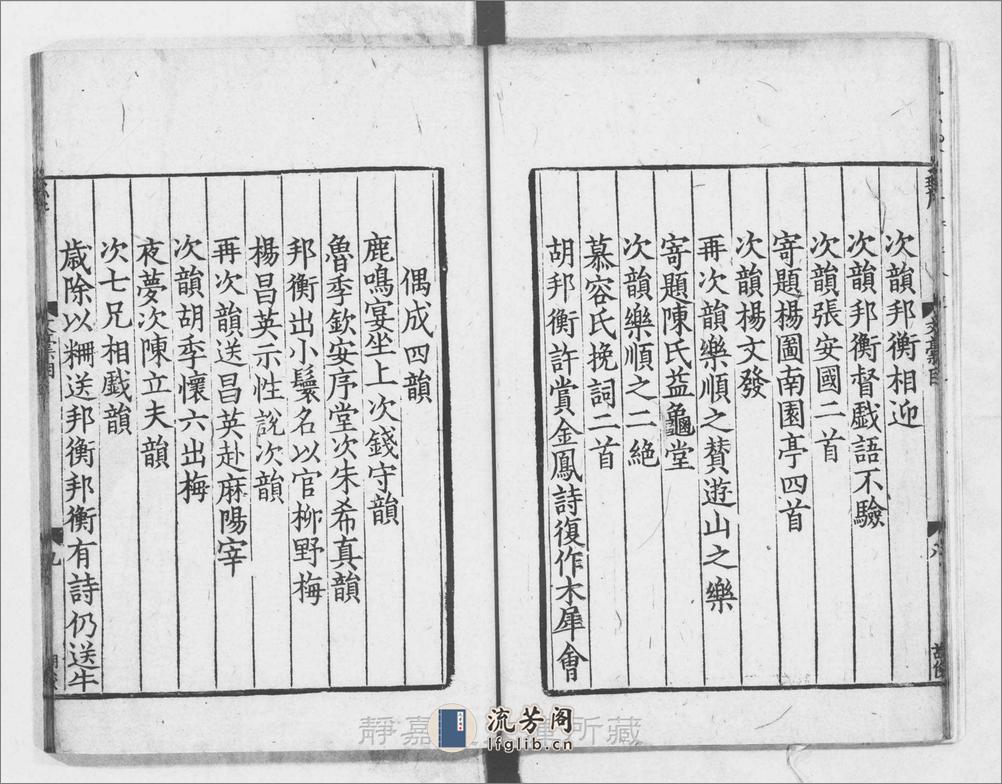 次韻邦衡相迎
次韻邦衡督戲語不驗
次韻張安國二首
寄題楊圖南園亭四首
次韻楊文發
再次韻樂順之賛遊山之樂
寄題陳氏益龜堂
次韻樂順之二絶
慕容氏挽詞二首
胡邦衡許賞金鳳詩復作木犀會
偶成四韻
鹿鳴宴坐上次錢守韻
魯季欽安序堂次朱希真韻
邦衡出小鬟名以官栁野梅
楊昌英示性說次韻
再次韻送昌英赴麻陽宰
次韻胡季懷六出梅
夜夢次陳立夫韻
次七兄相戲韻
歲除以糟送邦衡邦衡有詩仍送牛
九
流芳阁
lfglib.cn
靜嘉
所藏